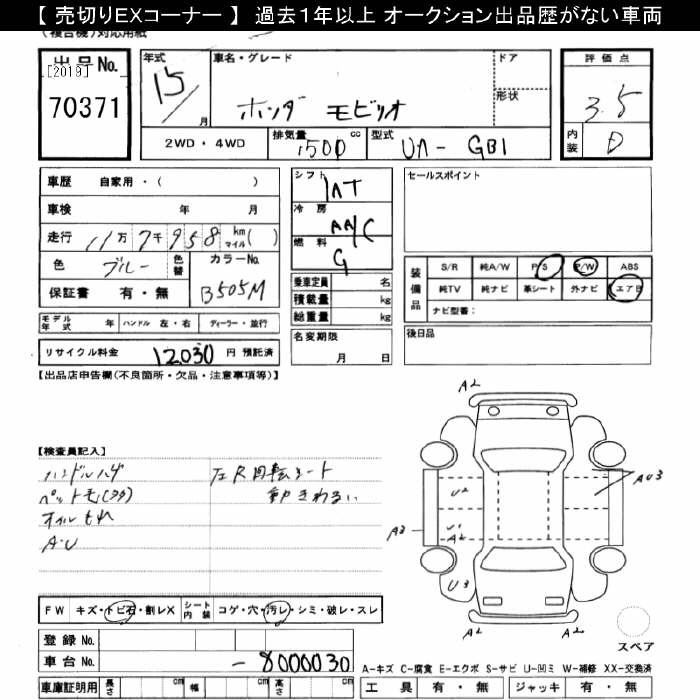 【 売切りEXコーナー 】 過去１年以上 オークション出品歴がない車両
(複合機)対応用紙
出 品 No.
[2019]
70371
年式
15/
月
車名・グレード
ホンダ モビリオ
ドア
形状
評 価 点
3.5
内装
D
2WD ・ 4WD
排気量
1500
cc
型式
UA - GB1
車歴 自家用・( )
車検 年 月
走行 11万 7千 958 km マイル( )
色 ブルー 色替
カラーNo.
B505M
保証書 有 ・ 無
モデル年式 年 ハンドル 左・右 ディーラー・並行
リサイクル料金 12030 円 預託済
シフト
IAT
冷房
AA/C
燃料
G
乗車定員 名
積載量 kg
総重量 kg
名変期限
月 日
セールスポイント
装備品
S/R 純A/W P/S P/W ABS
純TV 純ナビ 革シート 外ナビ エアB
ナビ型番：
後日品
【出品店申告欄(不良箇所・欠品・注意事項等)】
【検査員記入】
ハンドルハゲ
オイルもれ
A・U
左R回転シート
動きわるい
A2
U2
U1
A2
A3
U3
AU3
A2
スペア
FW キズ・トビ石・割レX
シート内装 コゲ・穴・汚レ・シミ・破レ・スレ
登録 No.
車台 No. - 8000030
車庫証明用 長さ cm 幅 cm 高さ cm
A-キズ C-腐食 E-エクボ S-サビ U-凹ミ W-補修 XX-交換済
工 具 有 ・ 無 ジャッキ 有 ・ 無